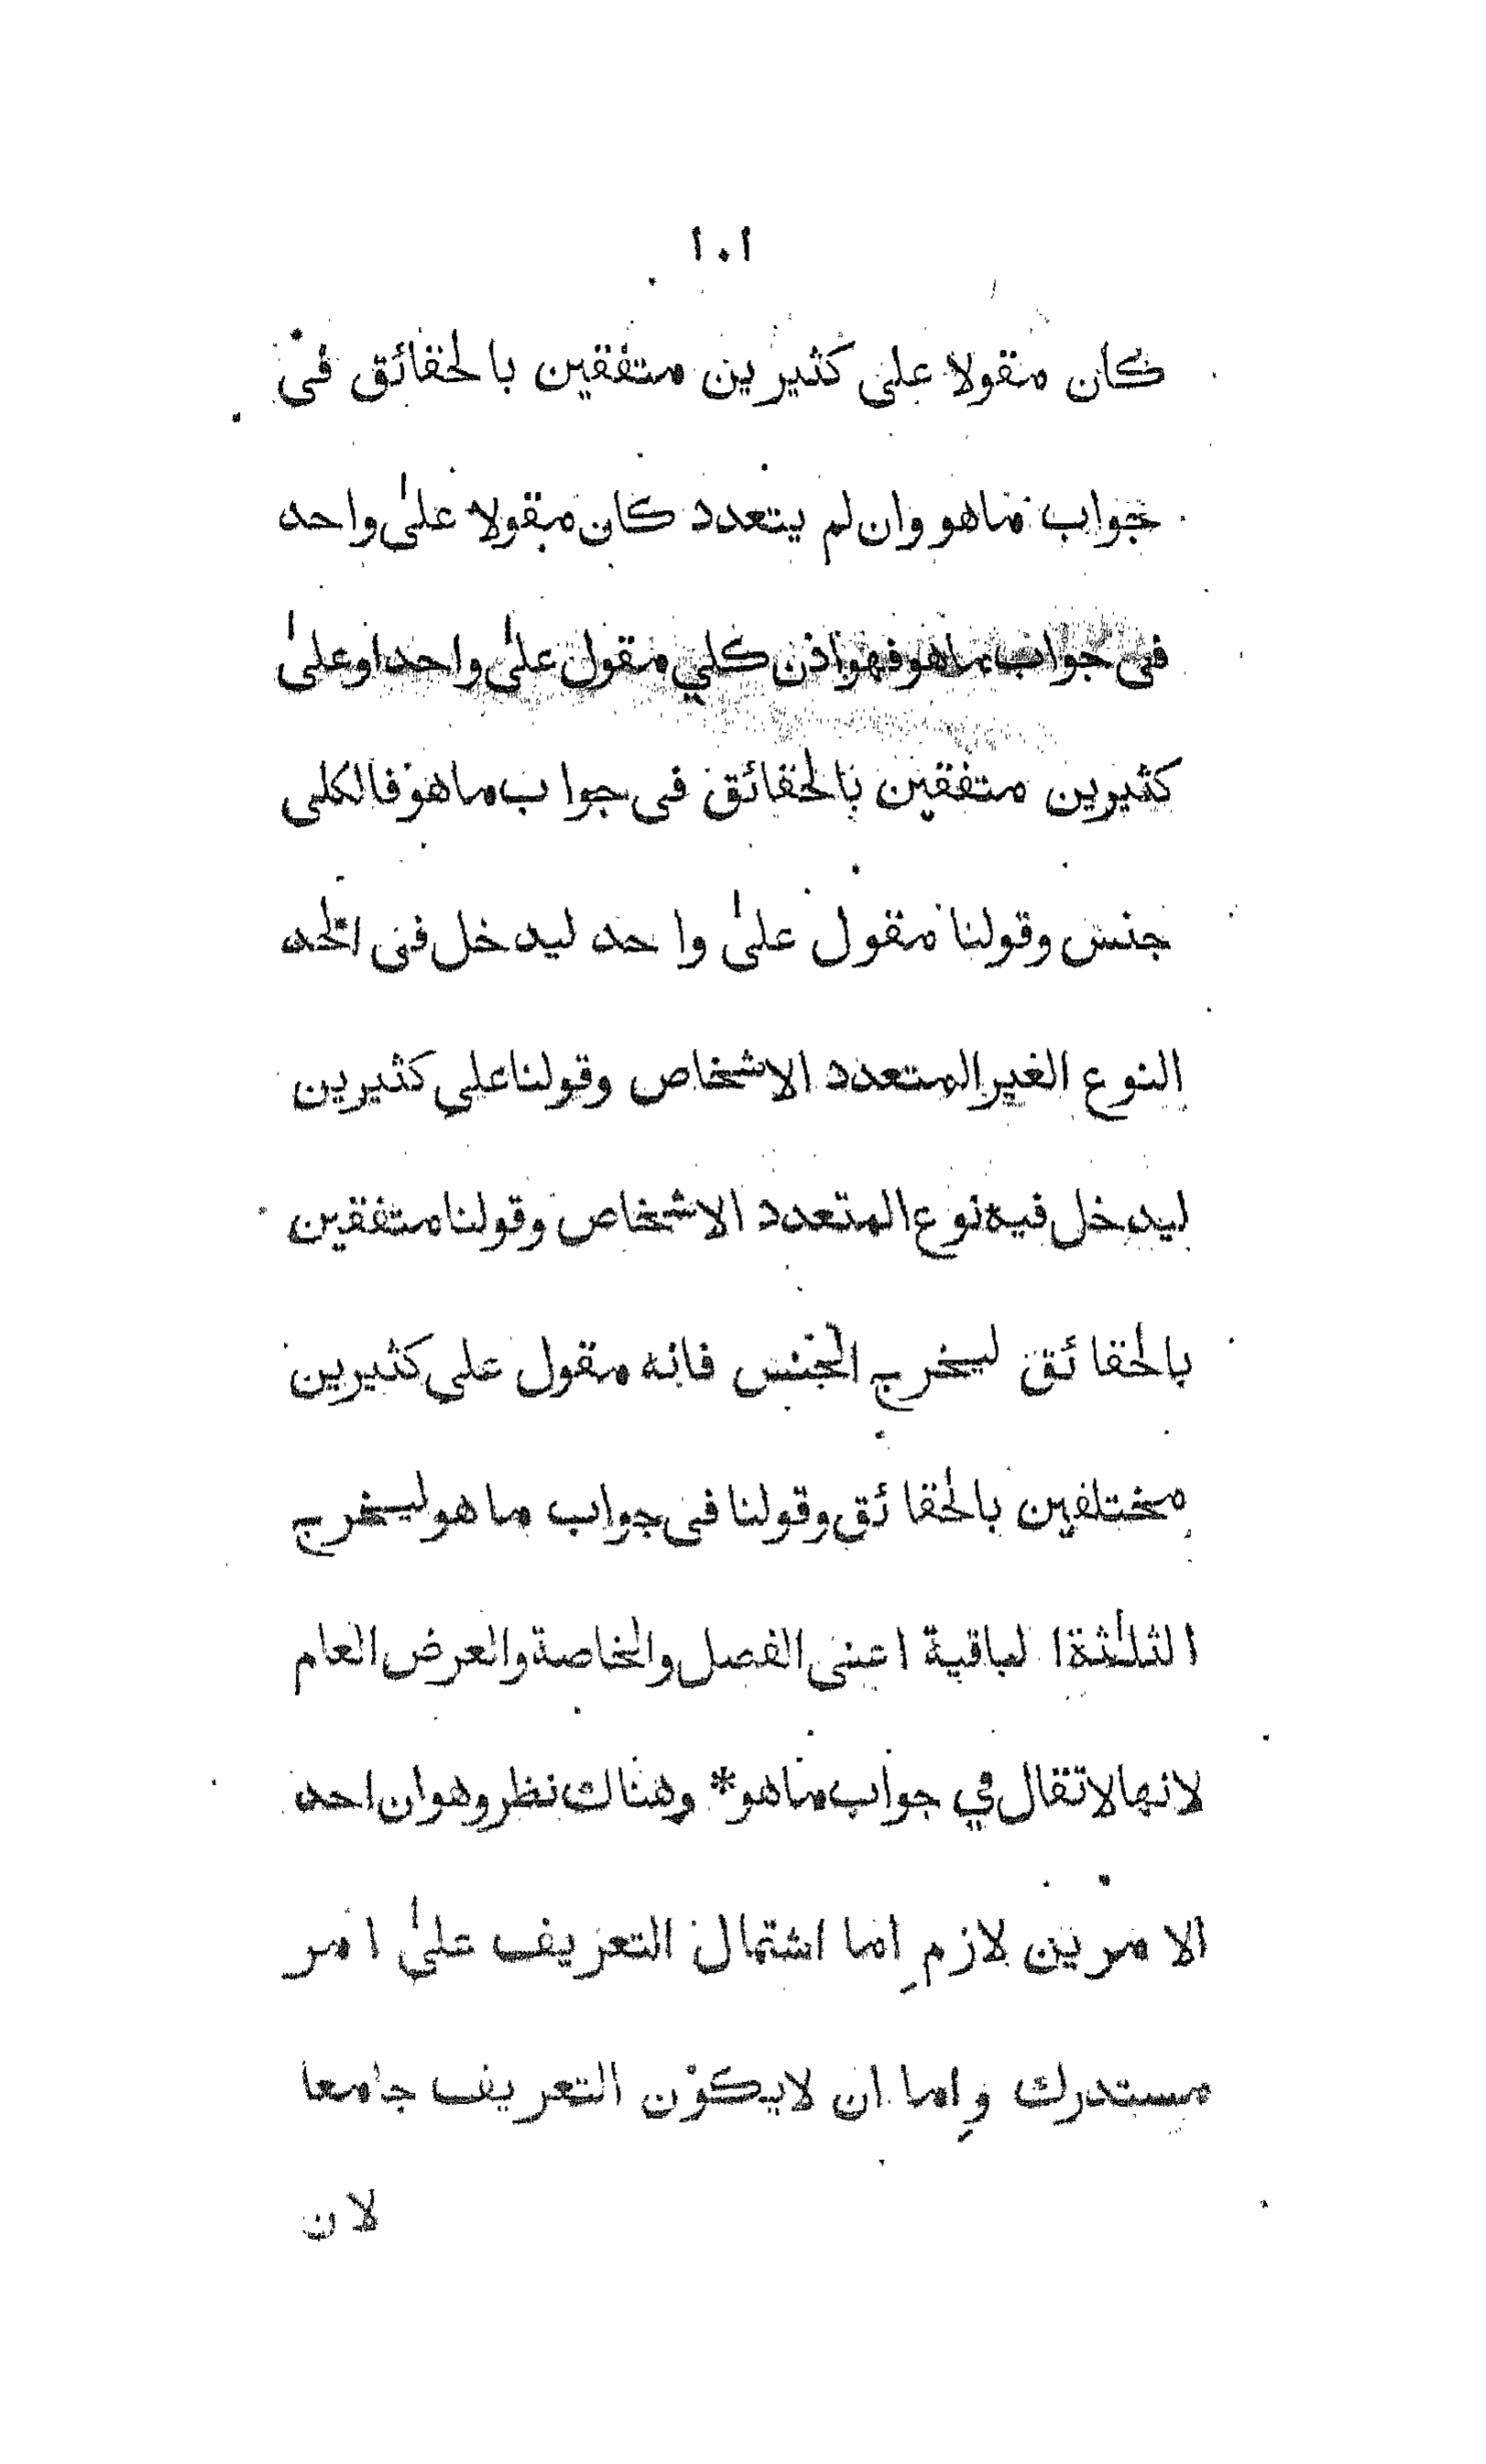 ١٠١
كان مقولا على كثيرين متفقين بالحقائق فى
جواب ماهو وان لم يتعدد كان مقولا علىٰ واحد
فى جواب ماهو فهو اذن كلي مقول علىٰ واحد او علىٰ
كثيرين متفقين بالحقائق فى جواب ماهو فالكلى
جنس وقولنا مقول علىٰ واحد ليدخل فى الحد
النوع الغير المتعدد الاشخاص وقولنا علي كثيرين
ليدخل فيه نوع المتعدد الاشخاص وقولنا متفقين
بالحقائق ليخرج الجنس فانه مقول علي كثيرين
مختلفين بالحقائق وقولنا فى جواب ما هو ليخرج
الثلٰثة الباقية اعنى الفصل والخاصة والعرض العام
لانها لا تقال في جواب ماهو * وهناك نظر وهو ان احد
الامرين لازم اِما اشتمال التعريف علىٰ امر
مستدرك واِما ان لايكون التعريف جامعا
لان